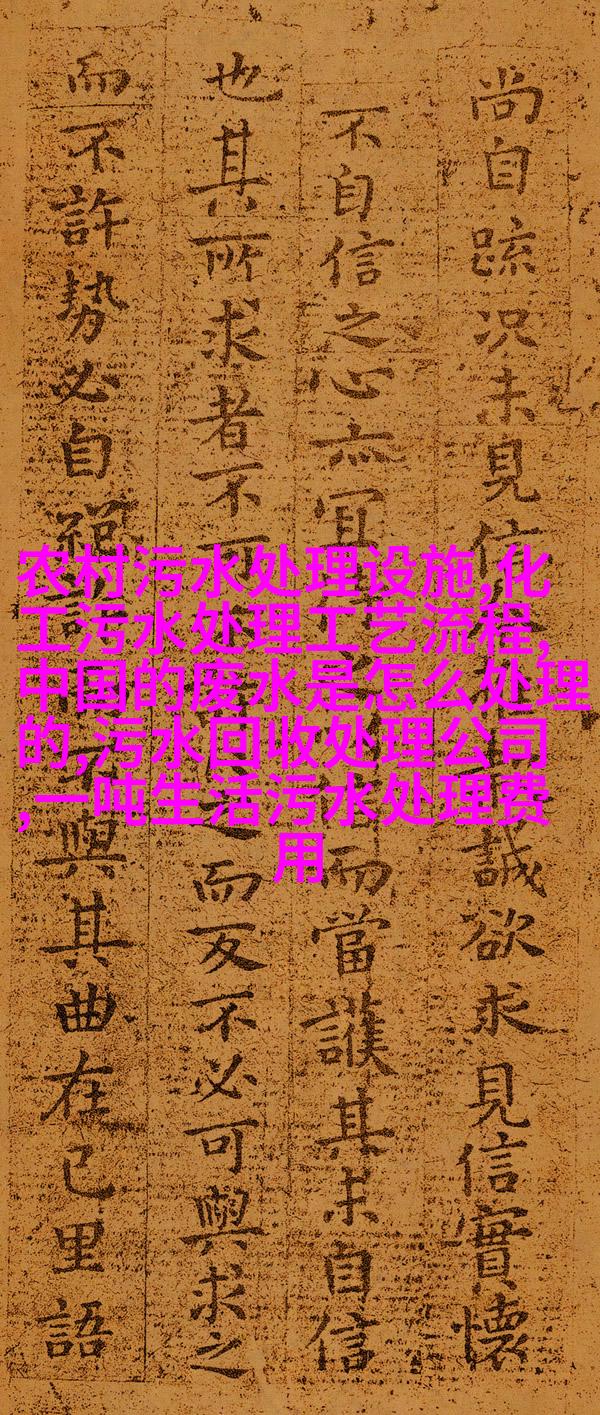 尚自疏況未見信誠欲求見信實懷
不自信之心亦宜而當護其未自信
也其所求者不可之而反不必可與求之
而不許勢必自絕與其曲在己里語
农村污水处理设施,化
工污水处理工艺流程,
中国的废水是怎么处理
的,污水回收处理公司
,一吨生活污水处理费
用